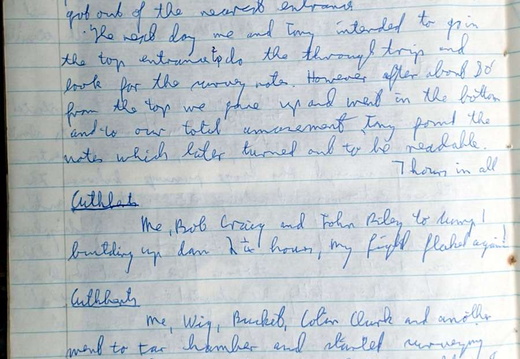 got out of the nearest entrance
The next day me and Tony intended to go in
the top entrance to do the through trip and
look for the survey notes. However after about 30'
from the top we gave up and went in the bottom
and to our total amazement Tony found the
notes which later turned out to be readable.
7 hours in all
Cuthberts
Me, Bob Craig and John Riley to
building up dam 2½ hours, my light flaked again!
Cuthberts
me, Wig, Bucket, Colin Clark and another
went to Far chamber and started surveying